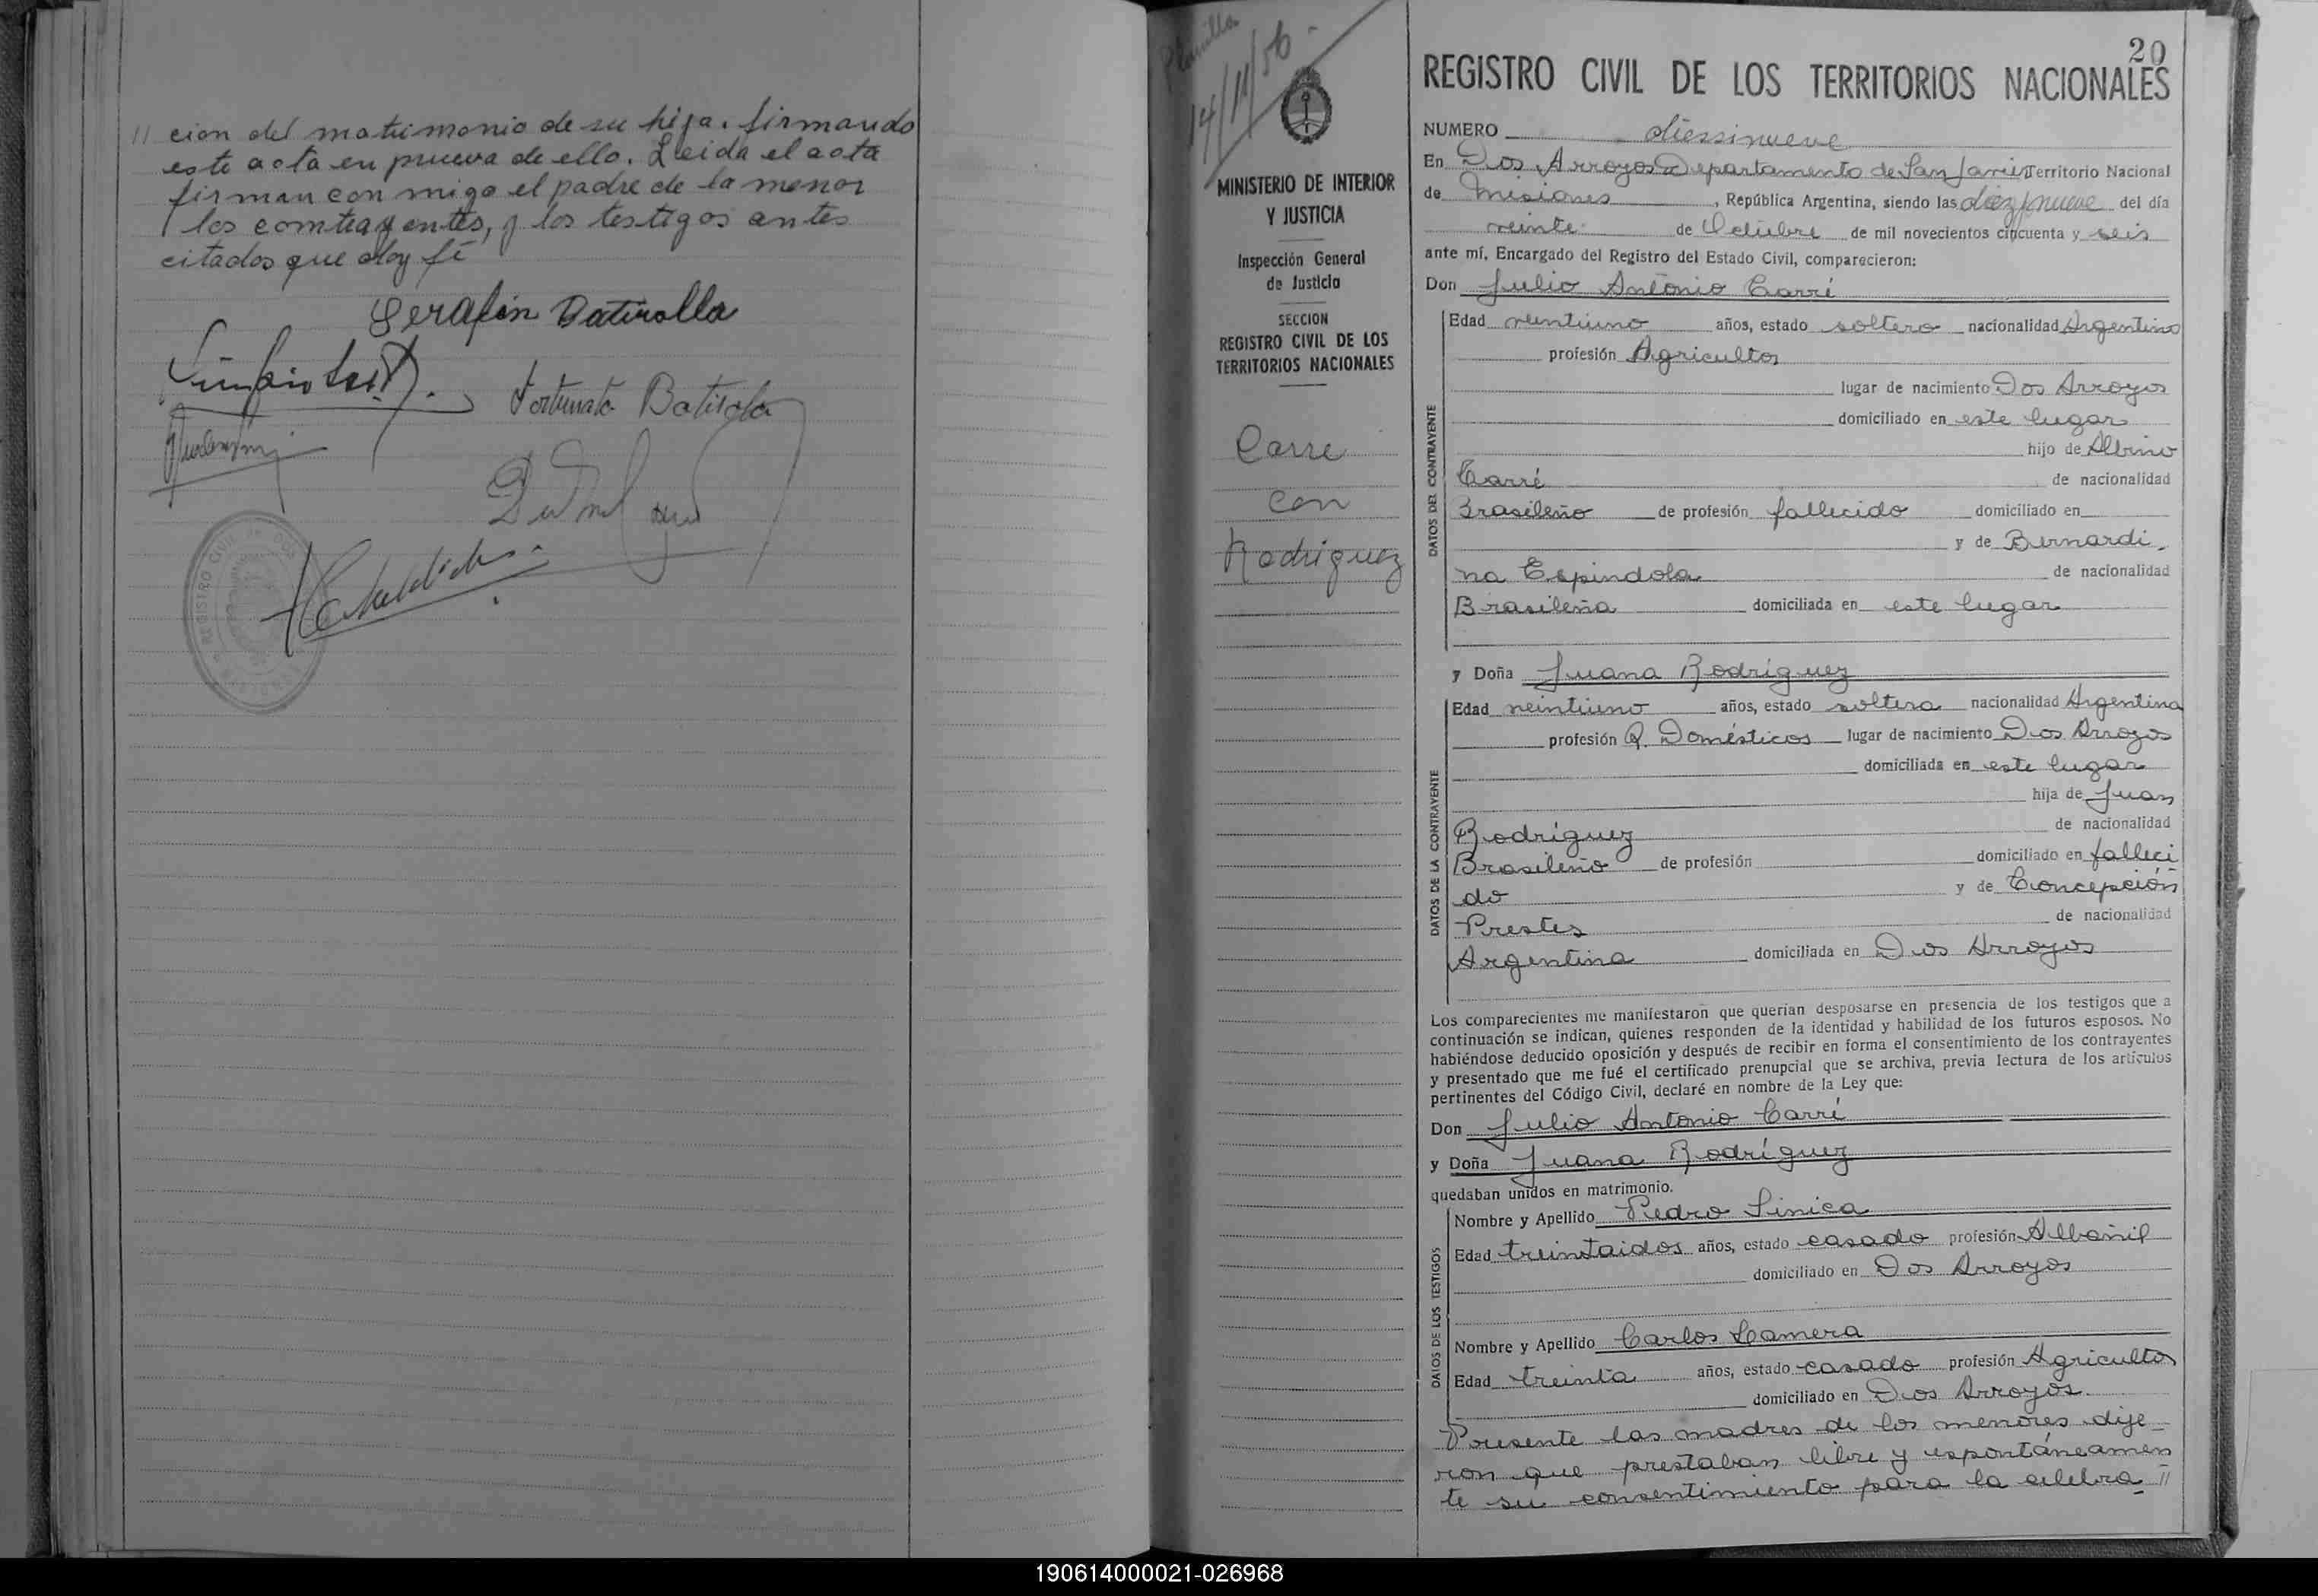 // cion del matrimonio de su hija. firmando
este acta en prueva de ello. Leida el acta
firman con migo el padre de la menor
los contrayentes, y los testigos antes
citados que doy fé
Serafin Batirolla
Fortunato Batirola
REGISTRO CIVIL DE DOS
Planilla
14/11/56-
MINISTERIO DE INTERIOR
Y JUSTICIA
Inspección General
de Justicia
SECCION
REGISTRO CIVIL DE LOS
TERRITORIOS NACIONALES
Carre
con
Rodriguez
20
REGISTRO CIVIL DE LOS TERRITORIOS NACIONALES
NUMERO diessinueve
En Dos Arroyos Departamento de San Javier Territorio Nacional
de Misiones, República Argentina, siendo las diez y nueve del día
veinte de Octubre de mil novecientos cincuenta y seis
ante mí, Encargado del Registro del Estado Civil, comparecieron:
Don Julio Antonio Carré
DATOS DEL CONTRAYENTE
Edad veintiuno años, estado soltero nacionalidad Argentino
profesión Agricultor
lugar de nacimiento Dos Arroyos
domiciliado en este lugar
hijo de Albino
Carré de nacionalidad
Brasileño de profesión fallecido domiciliado en
y de Bernardi-
na Espindola de nacionalidad
Brasileña domiciliada en este lugar
y Doña Juana Rodríguez
DATOS DE LA CONTRAYENTE
Edad veintiuno años, estado soltera nacionalidad Argentina
profesión Q. Domésticos lugar de nacimiento Dos Arroyos
domiciliada en este lugar
hija de Juan
Rodríguez de nacionalidad
Brasileño de profesión domiciliado en falleci
do y de Concepción
Prestes de nacionalidad
Argentina domiciliada en Dos Arroyos
Los comparecientes me manifestaron que querían desposarse en presencia de los testigos que a
continuación se indican, quienes responden de la identidad y habilidad de los futuros esposos. No
habiéndose deducido oposición y después de recibir en forma el consentimiento de los contrayentes
y presentado que me fué el certificado prenupcial que se archiva, previa lectura de los artículos
pertinentes del Código Civil, declaré en nombre de la Ley que:
Don Julio Antonio Carré
y Doña Juana Rodríguez
quedaban unidos en matrimonio.
DATOS DE LOS TESTIGOS
Nombre y Apellido Pedro Sinica
Edad treintaidos años, estado casado profesión Albañil
domiciliado en Dos Arroyos
Nombre y Apellido Carlos Lamera
Edad treinta años, estado casado profesión Agricultor
domiciliado en Dos Arroyos.
Presente las madres de los menores dije-
ron que prestaban libre y espontáneamen
te su consentimiento para la celebra- //
190614000021-026968